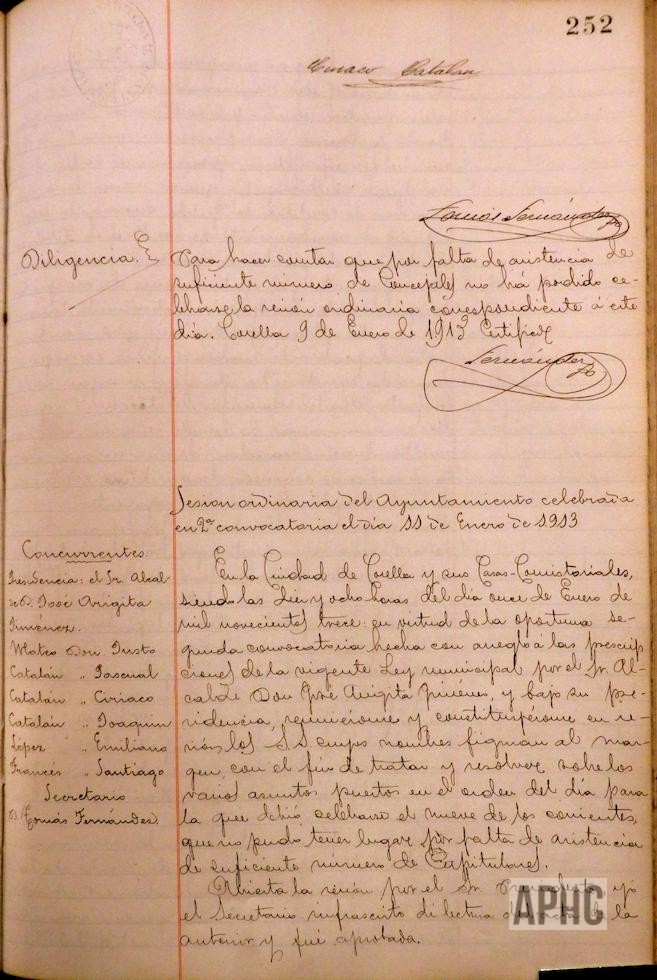 252
Ciriaco Catalán
Tomás Fernández
Diligencia.
Para hacer constar que por falta de asistencia de
suficiente número de Concejales no há podido ce-
lebrarse la sesión ordinaria correspondiente á este
día. Corella 9 de Enero de 1913 Certifico
Fernández
Sesion ordinaria del Ayuntamiento celebrada
en 2ª convocatoria el dia 11 de Enero de 1913
Concurrentes
Presidencia: el Sr. Alcal
de D. José Arigita
Jiménez.
Mateo Don Justo
Catalán „ Pascual
Catalán „ Ciriaco
Catalán „ Joaquin
López „ Emiliano
Francés „ Santiago
Secretario
D. Tomás Fernandez
En la Ciudad de Corella y sus Casas-Consistoriales,
siendo las diez y ocho horas del día once de Enero de
mil novecientos trece: en virtud de la oportuna se-
gunda convocatoria hecha con arreglo á las prescrip
ciones de la vigente Ley municipal por el Sr. Al-
calde Don José Arigita Jiménez, y bajo su pre-
sidencia, reunieronse y constituyéronse en se-
sión los S.S. cuyos nombres figuran al mar-
gen, con el fin de tratar y resolver sobre los
varios asuntos puestos en el orden del día para
la que debió celebrarse el nueve de los corrientes,
que no pudo tener lugar por falta de asistencia
de suficiente número de Capitulares.
Abierta la sesión por el Sr. Presidente, yó
el Secretario infrascrito dí lectura del acta de la
anterior y fué aprobada.
APHC